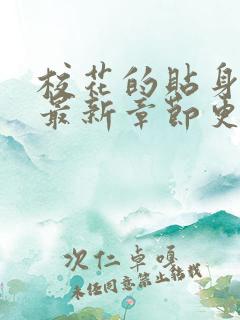 校花的贴身
最新章节更
次仁卓嘎
未经同意禁止转载